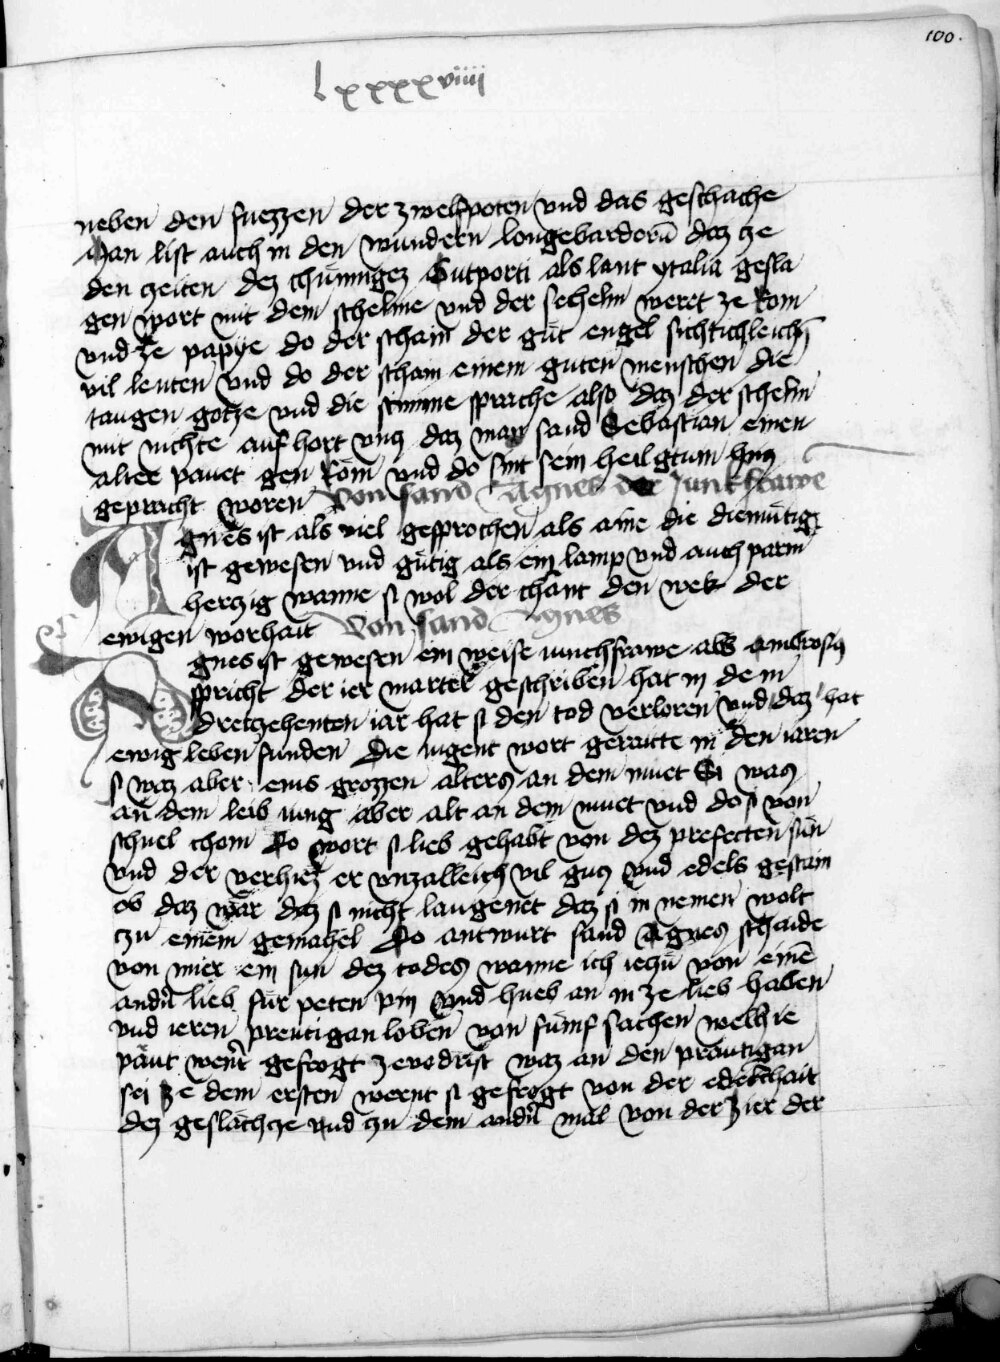 100.
Lxxxxviiii
neben den fuezzen der zwelfpoten vnd das geschache
Man list auch in den wundern longebardorū daz ze
den zeiten dez chūnigez Gutporti als lant ytalia gesla
gen wort mit dem schelme vnd der schelm weret ze Rom
vnd ze papye do der schain der gūt engel sichtichleich
vil leuten vnd do der scham einem guten menschen die
taugen gotze vnd die stimme sprache also daz der schelm
mit nichte auf hort vncz daz man sand Sebastian einen
alter pauet gen Rōm vnd do sint sein heilgtum hincz
gepracht woren Von sand Agnes der Junkfrawe
Agnes ist als viel gesprochen als aine die diemūtig
ist gewesen vnd gūtig als ein lamp vnd auch parm
herczig wanne si wol der chant den wek der
ewigen worhait Von sand Agnes
Agnes ist gewesen ein weise iunchfrawe als ambrosius
spricht der ier marter geschriben hat in dem
dreiczehenten iar hat si den tod verloren vnd daz hat
ewig leben funden Die iugent wort geraitte in den iaren
si waz aber eins grozzen alters an dem muet Si was
an dem leib iung aber alt an dem muet vnd do si von
schuel chom Do wort si lieb gehabt von dez prefecten sūn
vnd der verhiez er vnzalleich vil gucz vnd edels gestain
ob daz wār daz si nicht laugenet daz si in nemen wolt
zu einem gemahel Do antwurt sand Agnes schaide
von mier ein sun dez todes wanne ich iczū von einē
andn̄ lieb fūr peten pin vnd hueb an in ze lieb haben
vnd ieren preutigan loben von fūmf sachen welhie
pāut wen̄t gefrogt zevodrist waz an den prautigan
sei ze dem ersten wernt si gefrogt von der edelchait
dez geslāchcze vnd zu dem andn̄ mal von der zier der